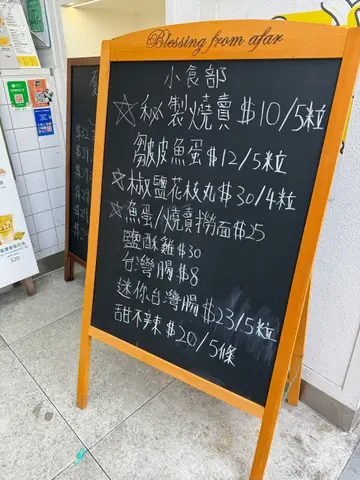 Blessing from afar
小食部
☆秘製燒賣$10/5粒
皺皮魚蛋$12/5粒
☆椒鹽花枝丸$30/4粒
☆魚蛋/燒賣撈面$25
鹽酥雞$30
台灣腸$8
迷你台灣腸$23/5粒
甜不辣$20/5條